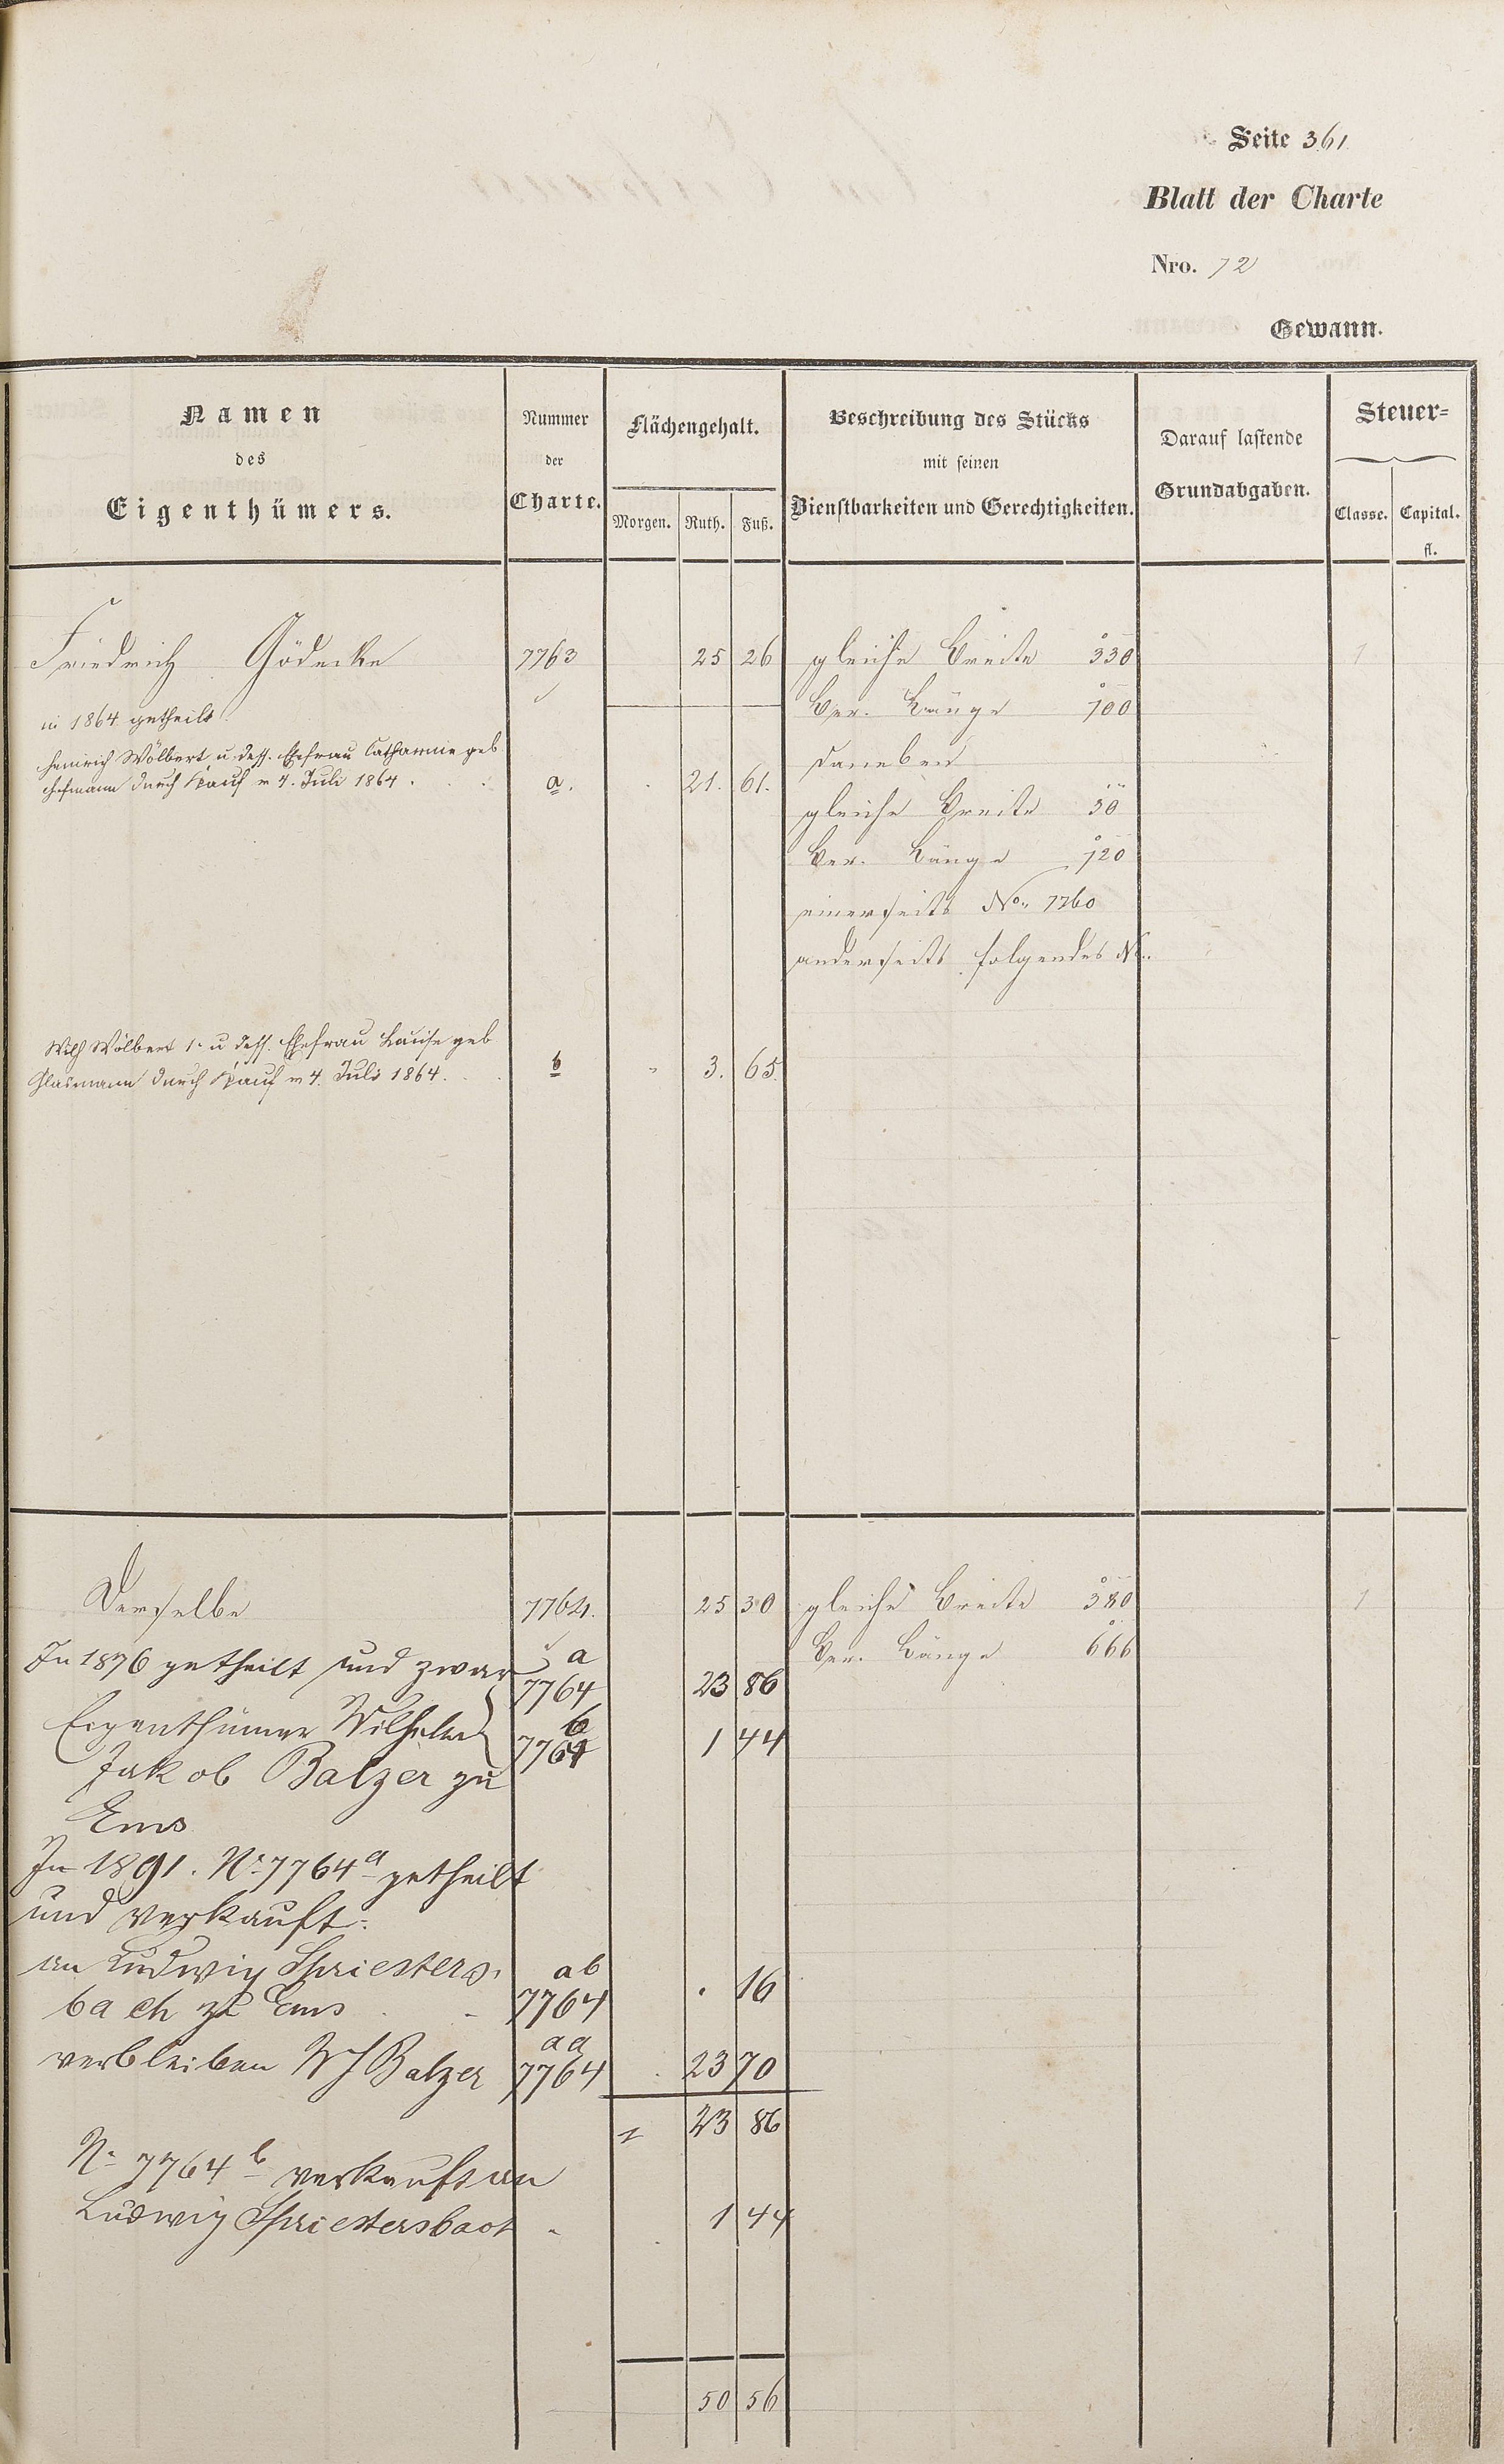 Seite 361
Blatt der Charte
Nro. 72
Gewann.
Namen
des
Eigenthümers.
Nummer
der
Charte.
Flächengehalt.
Morgen. Ruth. Fuß.
Beschreibung des Stücks
mit seinen
Dienstbarkeiten und Gerechtigkeiten.
Darauf lastende
Grundabgaben.
Steuer=
Classe. Capital.
fl.
Friedrich Gödecke 7763 25 26 gleiche Breite 330 1
in 1864 getheilt
Ber. Länge 700
Heinrich Wölbert u. dess. Ehefrau Catharine geb
daneben
Hofmann durch Kauf v 4. Juli 1864. a. 21. 61.
gleiche Breite 30
Ber. Länge 720
einerseits No. 7760
anderseits folgendes No.
Wilh Wölbert 1r u dess. Ehefrau Louise geb
Glasmann durch Kauf v 4. Juli 1864. b 3. 65.
Derselbe 7764. 25 30 gleiche Breite 380 1
Ber. Länge 666
In 1876 getheilt und zwar a
7764 23 86
Eigenthümer Wilhelm b
7764 1 44
Jakob Balzer zu
Ems
In 1891. No 7764a getheilt
und verkauft:
an Ludwig Spriesters- ab
bach zu Ems 7764 . 16
aa
verbleiben W J Balzer 7764 23 70
23 86
No 7764b verkauft an
Ludwig Spriestersbach 1 44
50 56